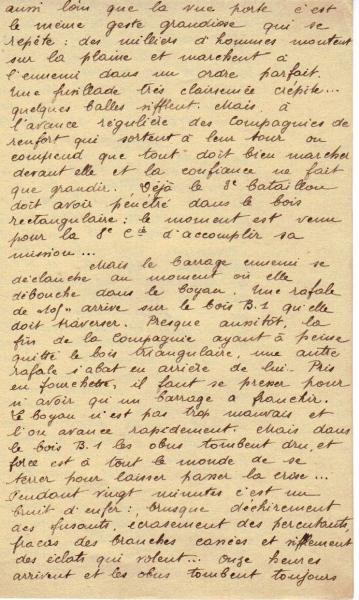 aussi loin que la vue porte c'est
le même geste grandiose qui se
repète : des milliers d'hommes montent
sur la plaine et marchent à
l'ennemi dans un ordre parfait.
Une fusillade très clairsemée crépite...
quelques balles sifflent. Mais, à
l'avance régulière des compagnies de
renfort qui sortent à leur tour on
comprend que tout doit bien marcher
devant elle et la confiance ne fait
que grandir. Déjà le 3e bataillon
doit avoir pénétré dans le bois
rectangulaire : le moment est venu
pour la 8e Cie d'accomplir sa
mission...
Mais le barrage ennemi se
déclanche au moment où elle
débouche dans le boyau. Une rafale
de "105" arrive sur le bois B.1 qu'elle
doit traverser. Presque aussitôt, la
fin de la Compagnie ayant à peine
quitté le bois triangulaire, une autre
rafale s'abat en arrière de lui. Pris
en fourchette, il faut se presser pour
n'avoir qu'un barrage à franchir.
Le boyau n'est pas trop mauvais et
l'on avance rapidement. Mais dans
le bois B.1 les obus tombent dru, et
force est à tout le monde de se
terrer pour laisser passer la crise...
Pendant vingt minutes c'est un
bruit d'enfer :, brusque déchirement
des fusants, écrasement des percutants,
fracas des branches cassées et sifflement
des éclats qui volent... Onze heures
arrivent et les obus tombent toujours